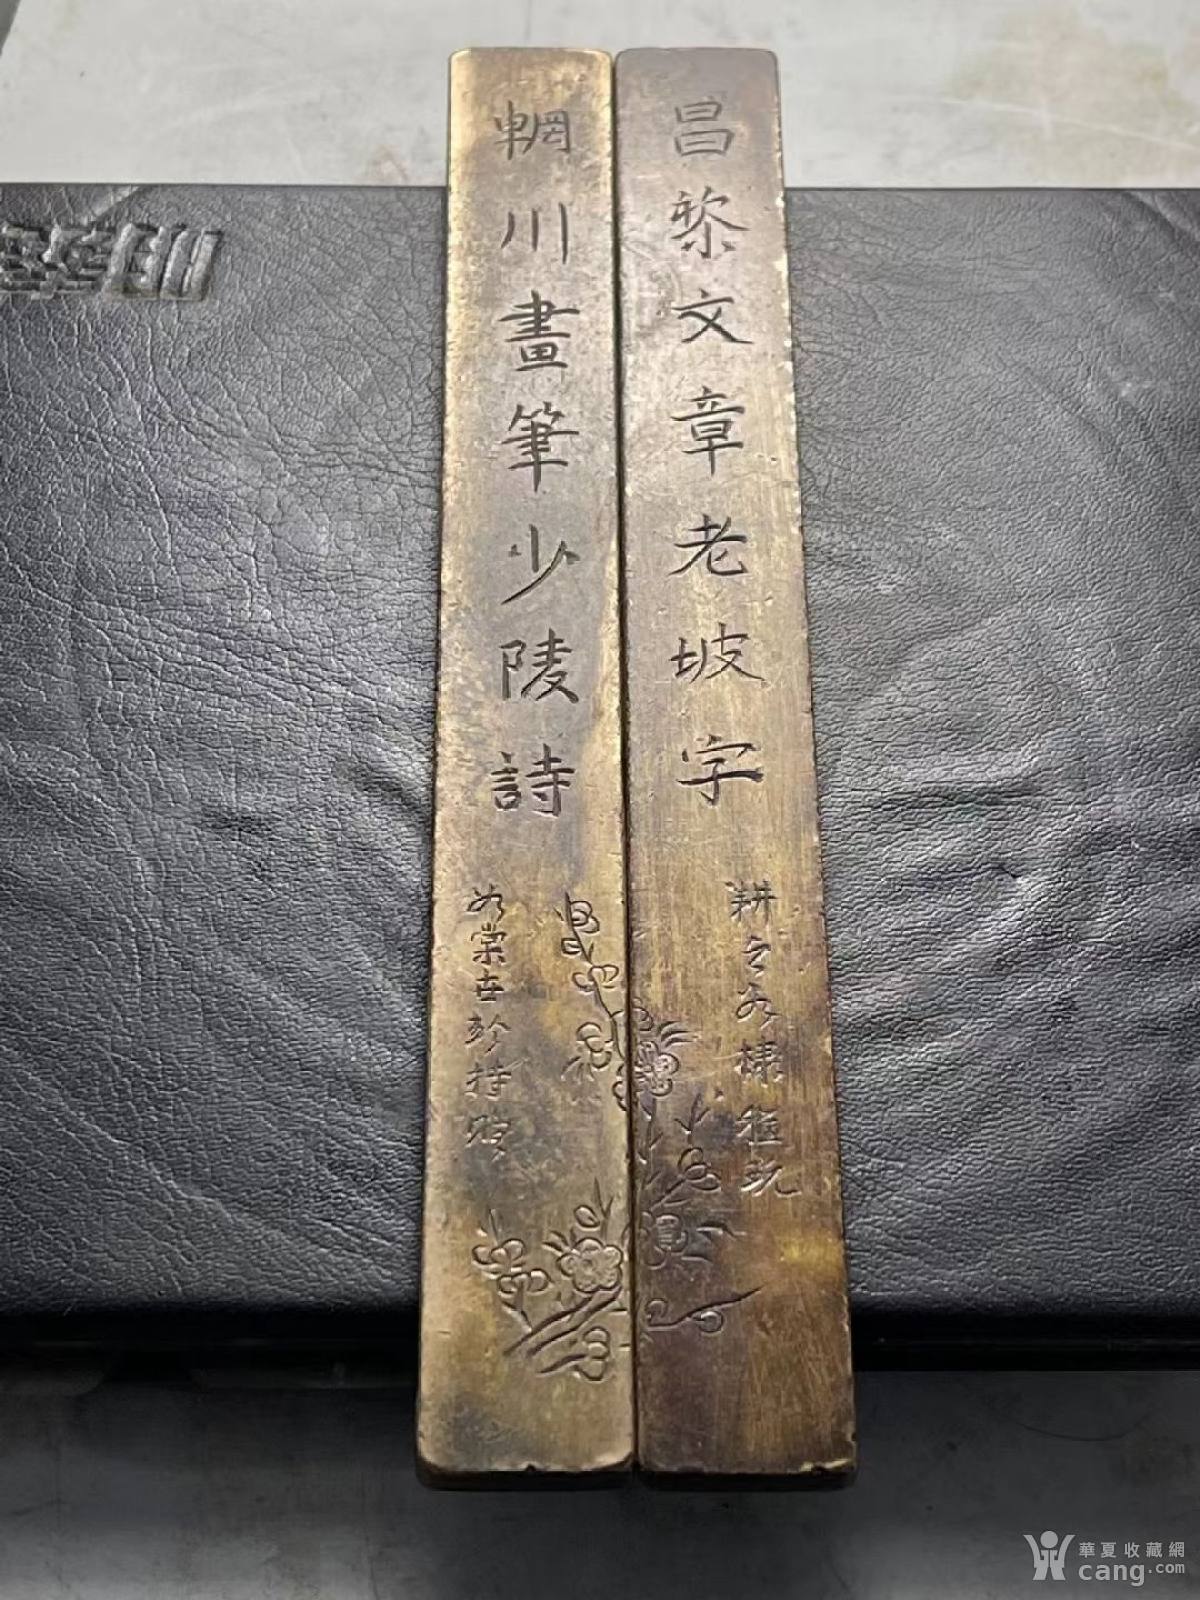 昌黎文章老坡字
耕之如棣雅玩
輞川畫筆少陵詩
如棠世珍持贈
華夏收藏網
cang.com